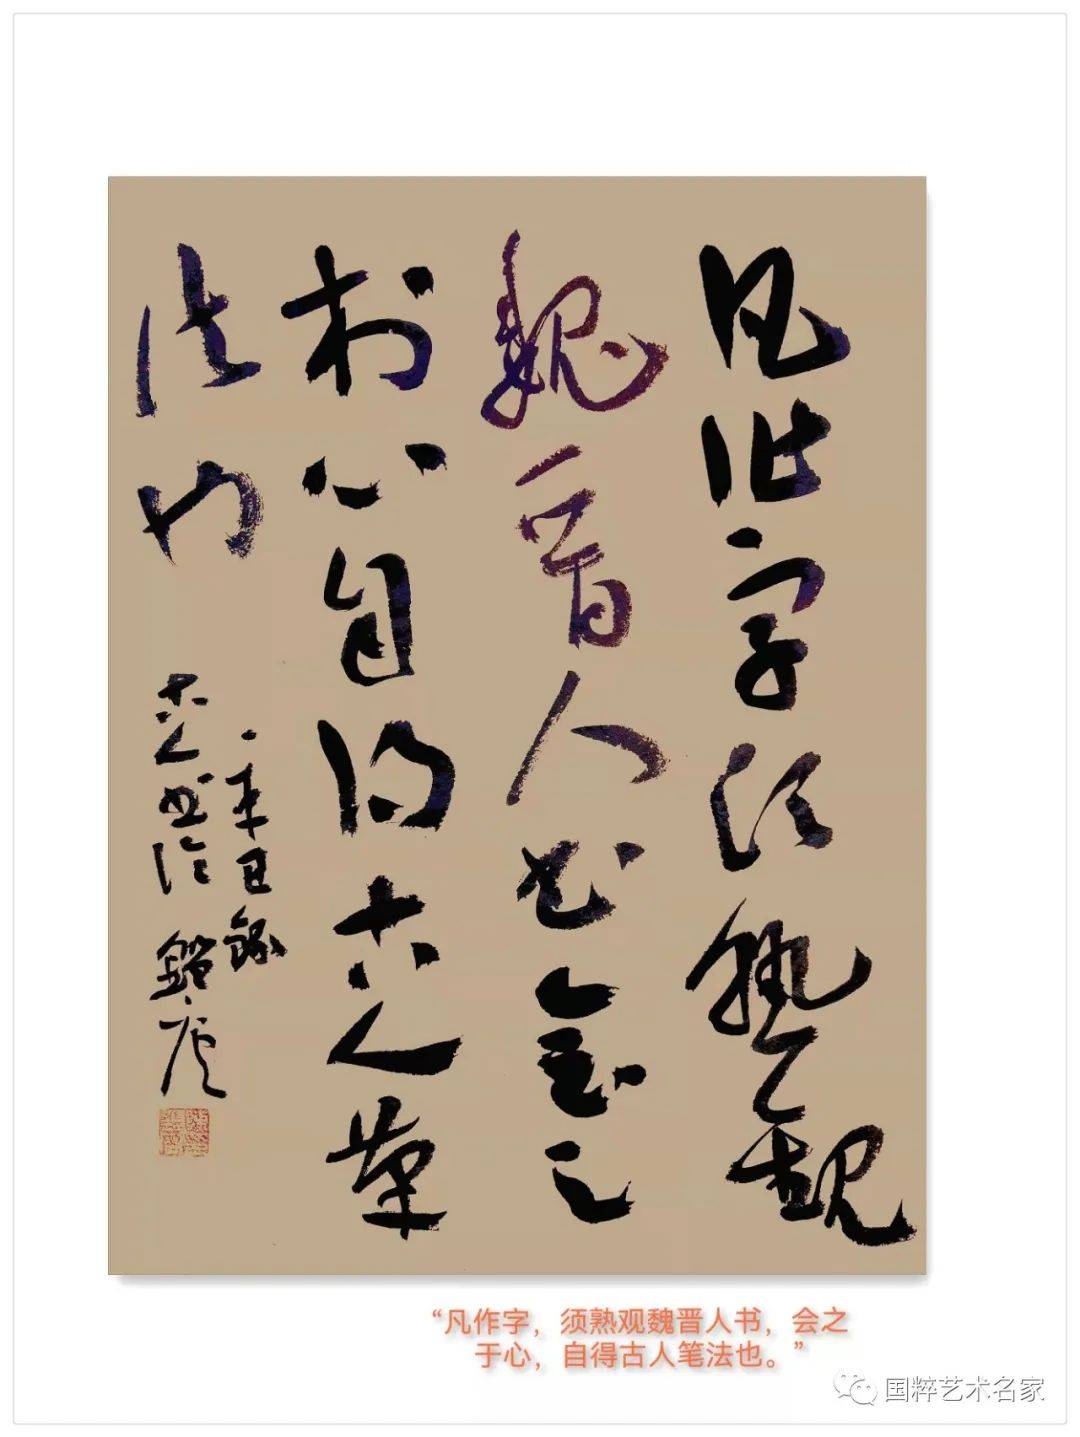 凡作字须熟观
魏晋人书会之
于心自得古人笔
法也
辛丑录
古人书论
“凡作字，须熟观魏晋人书，会之
于心，自得古人笔法也。”
国粹艺术名家